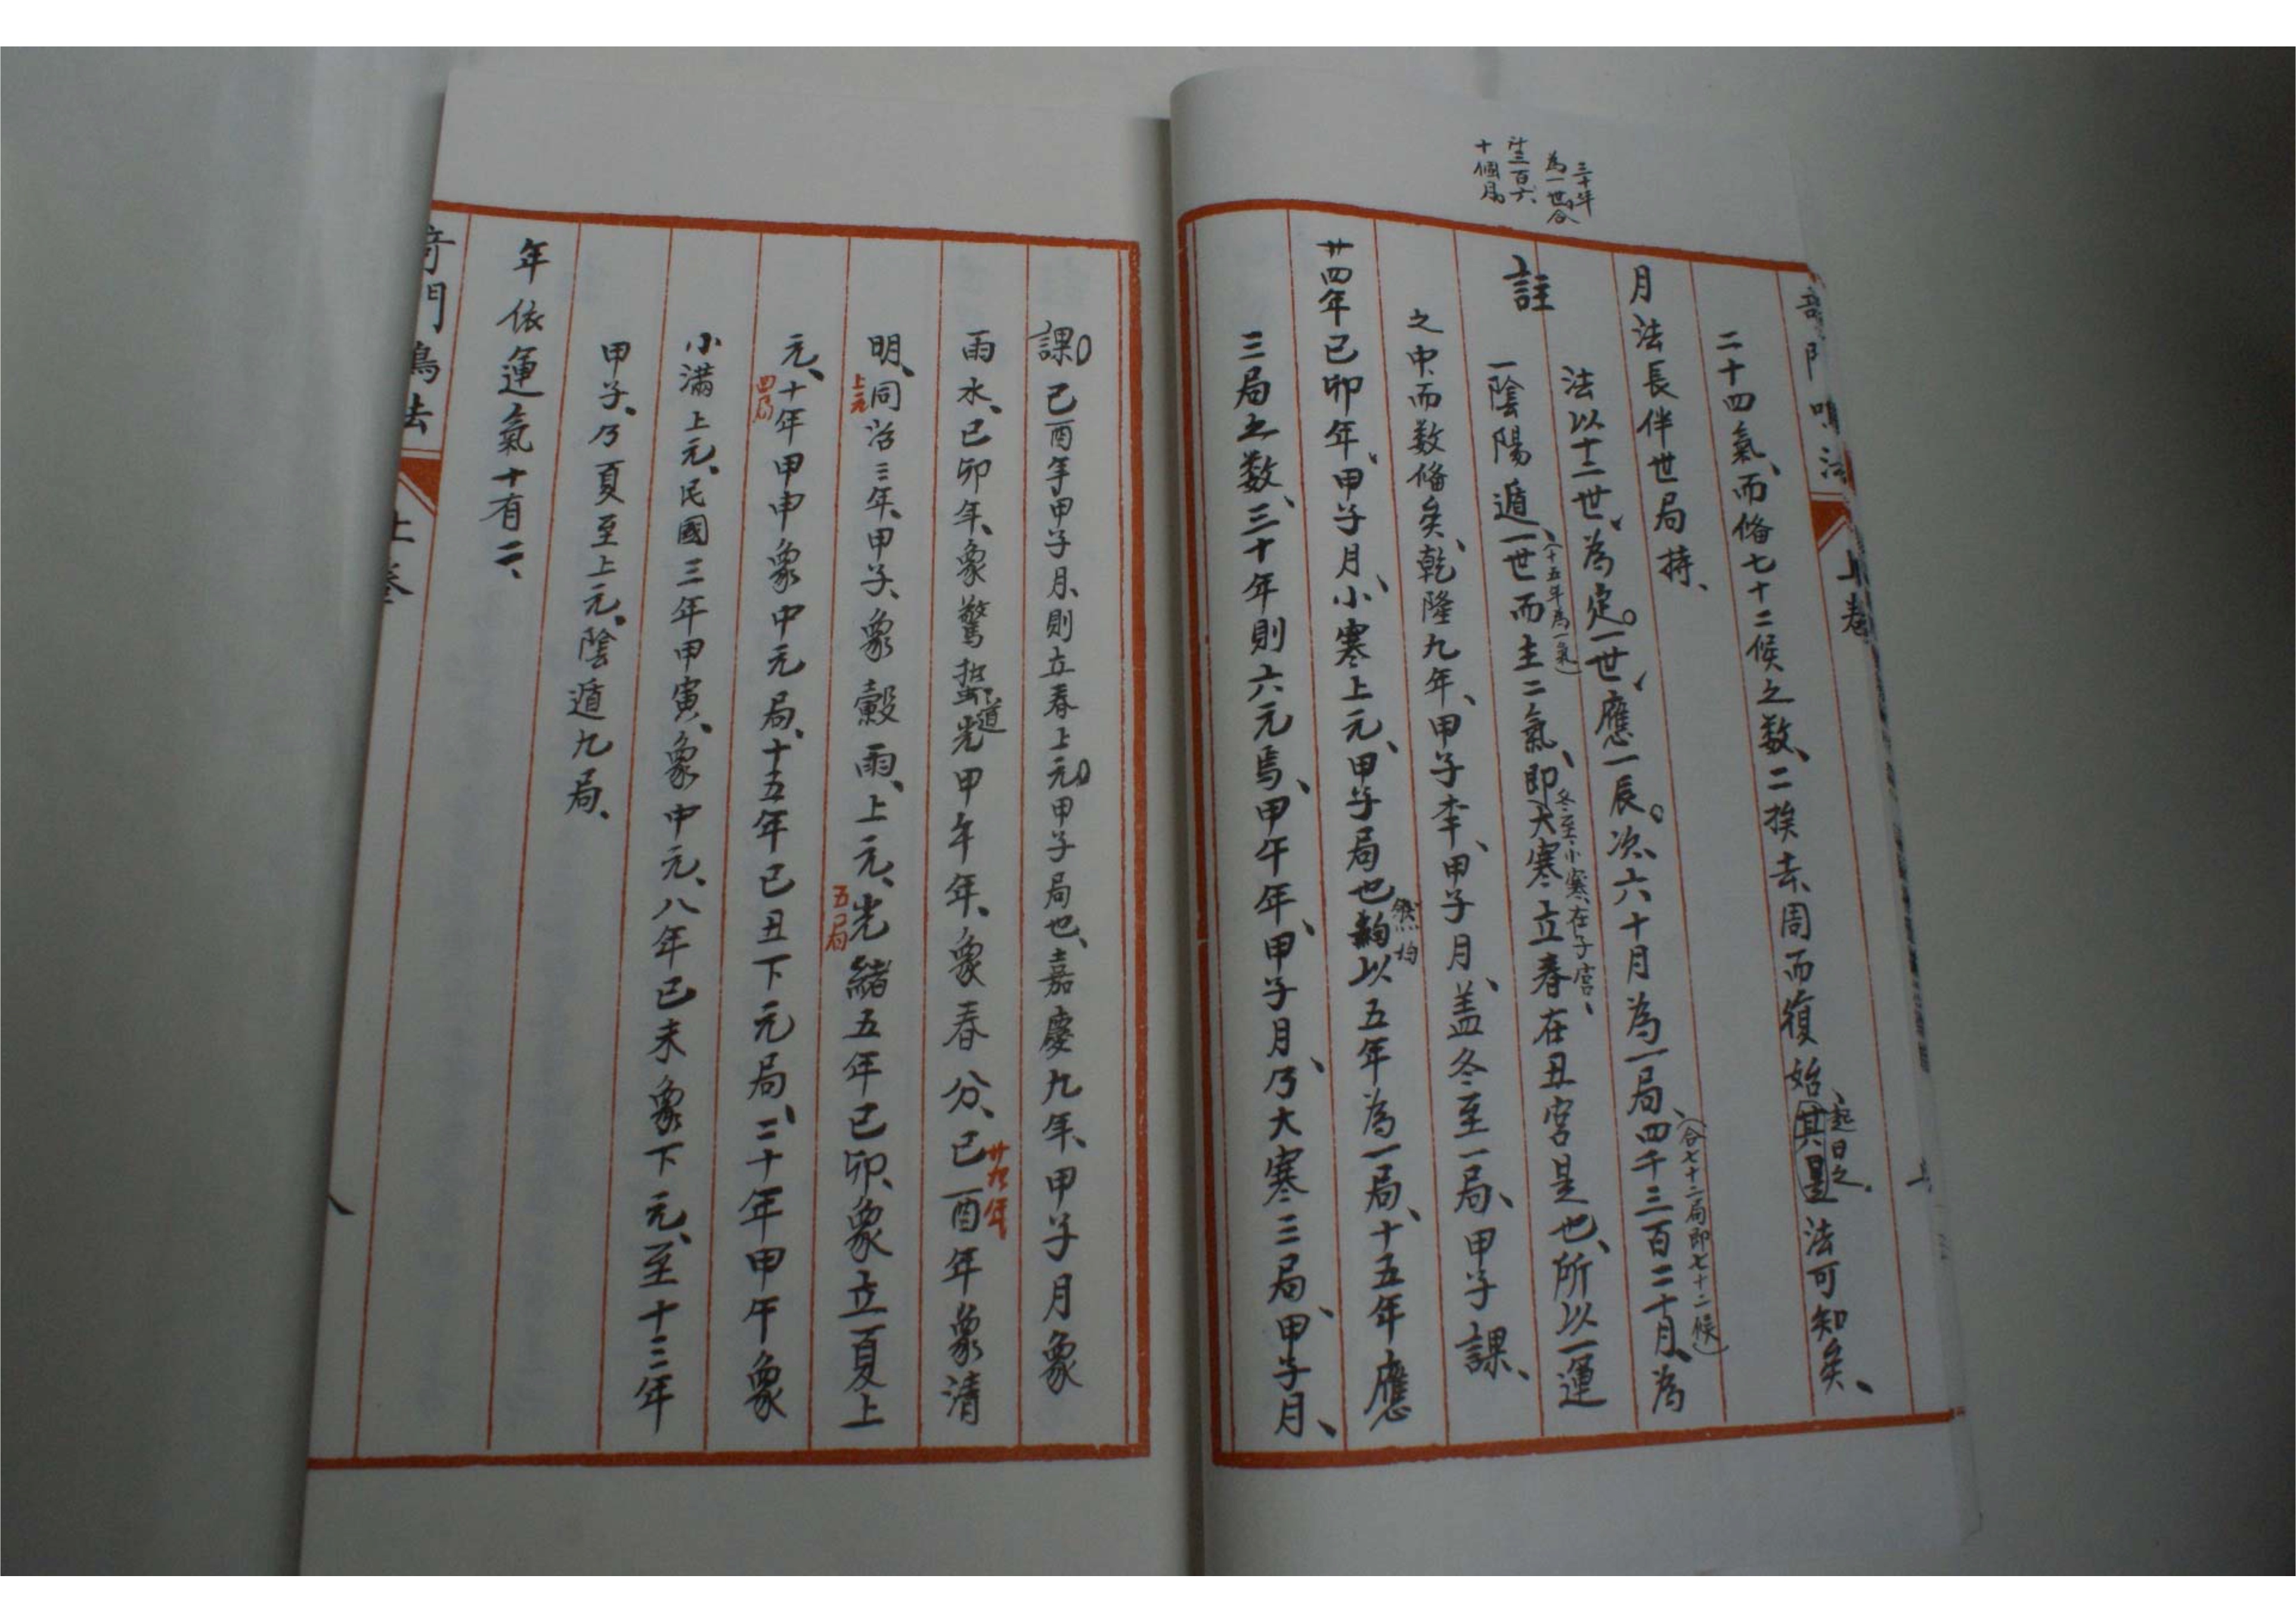 奇門鳴法
上卷
二十四氣、而俻七十二候之数、二挨去、周而復始、其量法可知矣、
起日之
月法長伴世局持、
註
法以十二世、為定。一世、應一辰。次、六十月為一局、四千三百二十月、為
（合七十二局即七十二候）
一陰陽遁、一世而主二氣、即大寒立春在丑宮是也、所以一運
（十五年為一氣）
冬至、小寒、在子宮、
之中、而数俻矣、乾隆九年、甲子李、甲子月、盖冬至一局、甲子課、
廿四年己卯年、甲子月、小寒上元、甲子局也以五年為一局、十五年應
然均
三局之数、三十年則六元焉、甲午年、甲子月、乃大寒三局、甲子月、
三十年
為一世合
計三百六
十個局
課。己酉年甲子月、則立春上元。甲子局也、嘉慶九年、甲子月象
雨水、己卯年、象驚蟄、光甲午年、象春分、己酉年象清
道
廿九年
明、同治三年、甲子、象穀雨、上元、光緒五年己卯、象立夏上
上元
五局
元、十年甲申象中元局、十五年己丑下元局、二十年甲午象
四局
小滿上元、民國三年甲寅、象中元、八年己未象下元、至十三年
甲子、乃夏至上元、陰遁九局、
年依運氣十有二、
奇門鳴法
上卷
八